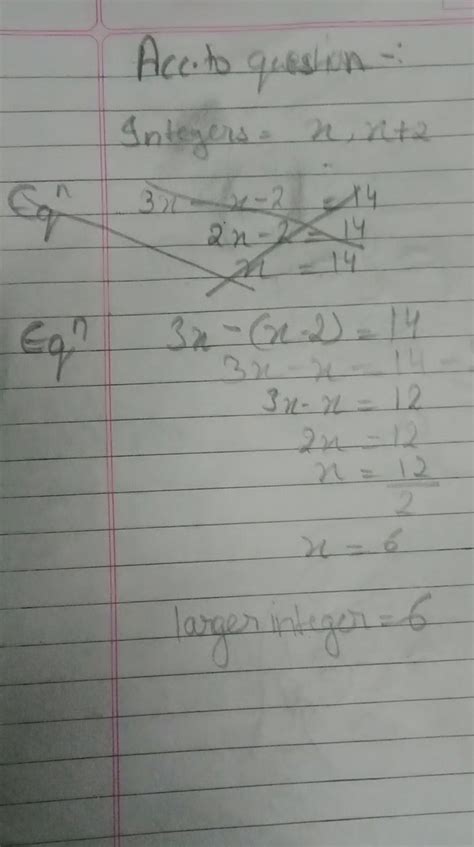 Acc. to question -:
Integers = x, x+2
Eqⁿ 3x - x-2 = 14
2x-2 = 14
x = 14
Eqⁿ 3x-(x-2) = 14
3x - x = 14 -
3x-x = 12
2x = 12
x = 12/2
x = 6
larger integer = 6